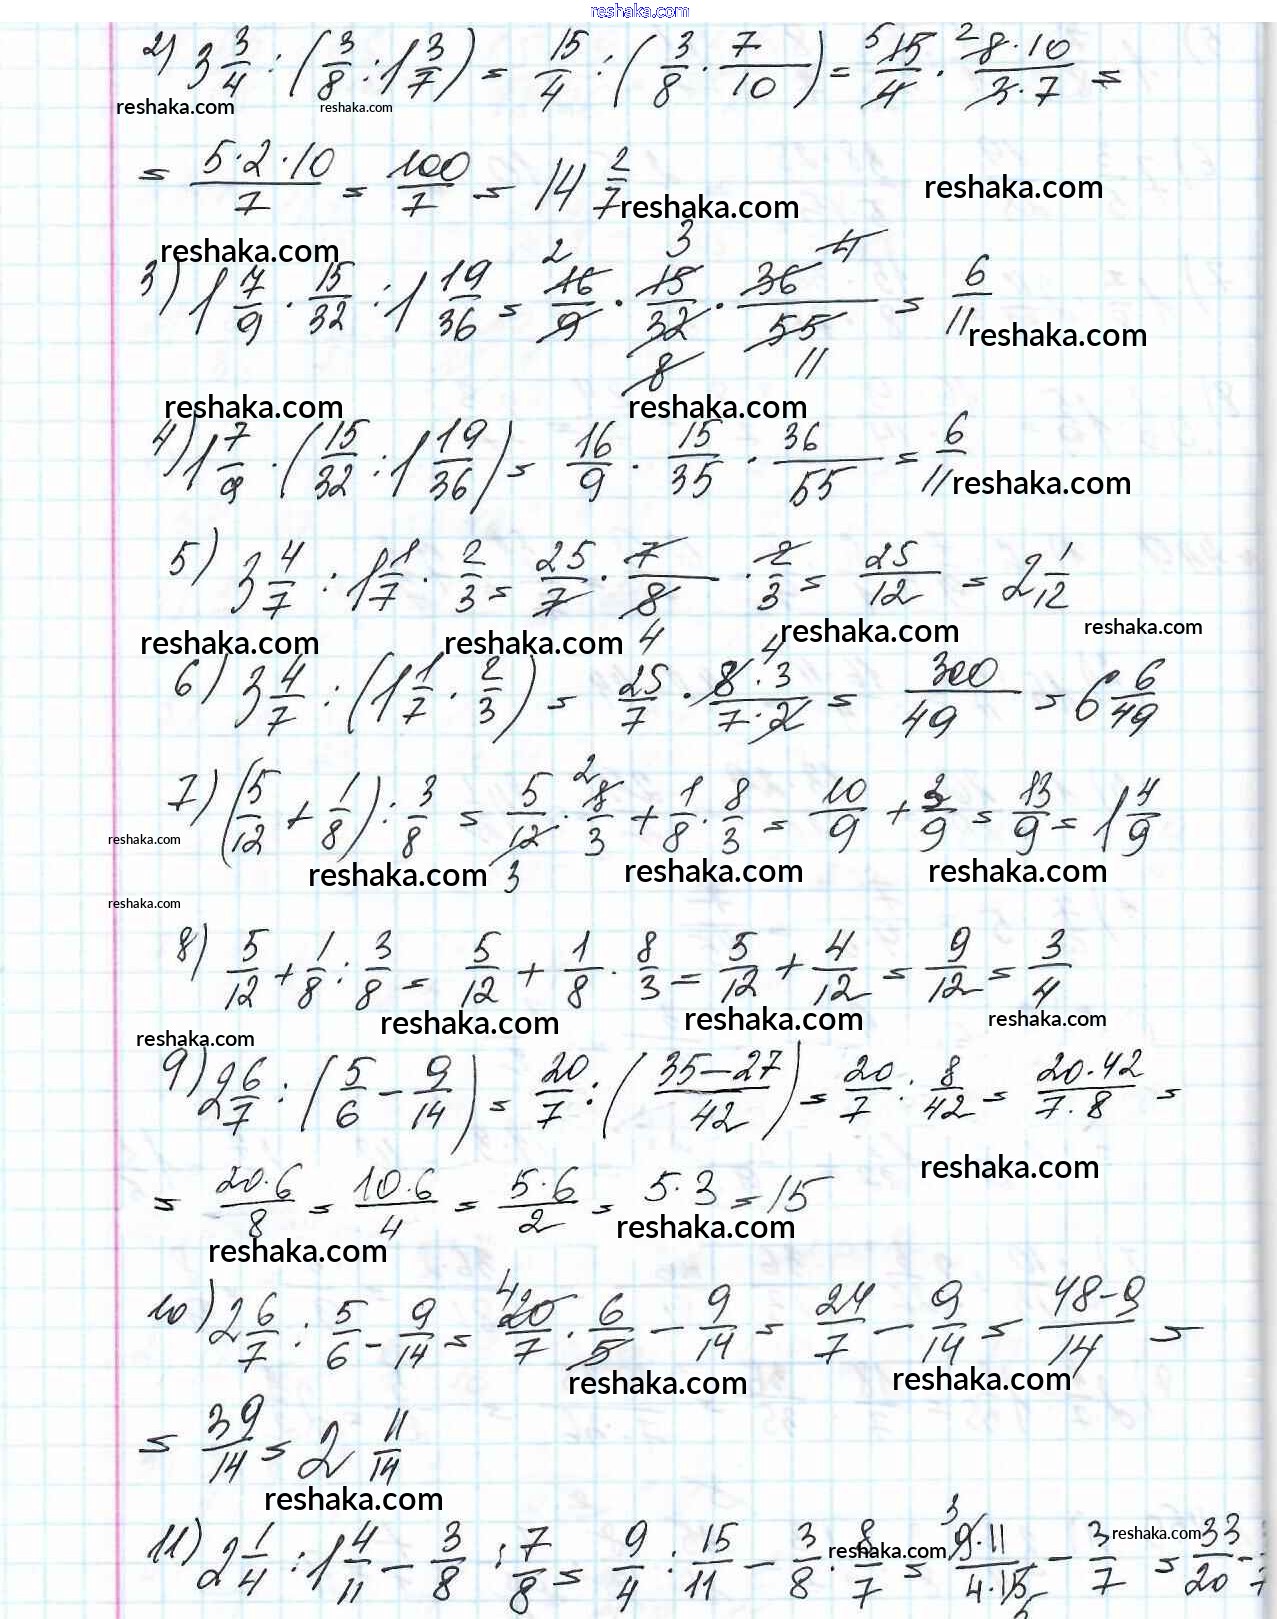 reshaka.com
2) 3 3/4 : (3/8 : 1 3/7) = 15/4 : (3/8 · 7/10) = 5 15/4 · 2 8·10/3·7 =
reshaka.com reshaka.com
= 5·2·10/7 = 100/7 = 14 2/7
reshaka.com reshaka.com
reshaka.com
3) 1 7/9 · 15/32 : 1 19/36 = 2 16/9 · 3 15/32 8 · 36/55 4 11 = 6/11
reshaka.com
reshaka.com reshaka.com
4) 1 7/9 · (15/32 : 1 19/36) = 16/9 · 15/35 · 36/55 = 6/11
reshaka.com
5) 3 4/7 : 1 1/7 · 2/3 = 25/7 · 7/8 4 · 2/3 = 25/12 = 2 1/12
reshaka.com reshaka.com reshaka.com reshaka.com
6) 3 4/7 : (1 1/7 · 2/3) = 25/7 · 8·3/7·2 4 = 300/49 = 6 6/49
7) (5/12 + 1/8) : 3/8 = 5/12 3 · 2 8/3 + 1/8 · 8/3 = 10/9 + 3/9 = 13/9 = 1 4/9
reshaka.com
reshaka.com reshaka.com reshaka.com
reshaka.com
8) 5/12 + 1/8 : 3/8 = 5/12 + 1/8 · 8/3 = 5/12 + 4/12 = 9/12 = 3/4
reshaka.com reshaka.com reshaka.com
reshaka.com
9) 2 6/7 : (5/6 - 9/14) = 20/7 : (35-27/42) = 20/7 : 8/42 = 20·42/7·8 =
reshaka.com
= 20·6/8 = 10·6/4 = 5·6/2 = 5·3 = 15
reshaka.com reshaka.com
10) 2 6/7 : 5/6 - 9/14 = 4 20/7 · 6/5 - 9/14 = 24/7 - 9/14 = 48-9/14 =
reshaka.com reshaka.com
= 39/14 = 2 11/14
reshaka.com
11) 2 1/4 : 1 4/11 - 3/8 : 7/8 = 9/4 : 15/11 - 3/8 · 8/7 = 3 9·11/4·15 5 - 3/7 = 33/20 -
reshaka.com reshaka.com